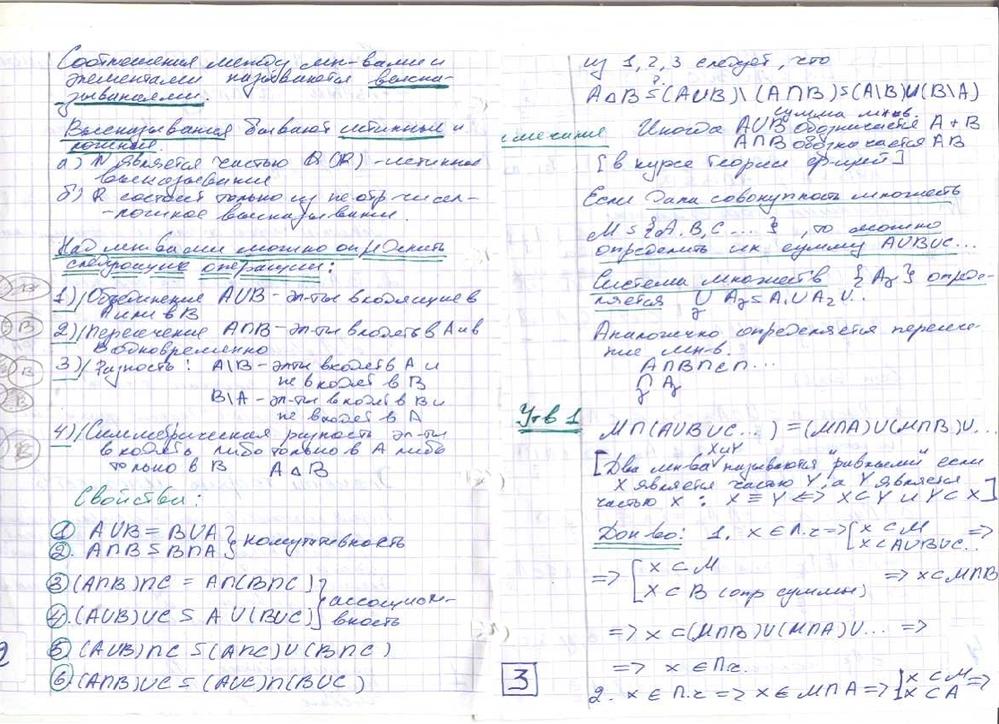 Соотношения между мн-вами и
элементами называются выска-
зываниями.
Высказывания бывают истинные и
ложные.
а) N является частью Q (R) - истинное
высказывание
б) R состоит только из неотр. чисел -
- ложное высказывание.
Над мн-вами можно определить
следующие операции:
1) Объединение A∪B - эл-ты входящие в
A или в B
2) Пересечение A∩B - эл-ты входят в A и в
B одновременно
3) Разность: A\B - эл-ты входят в A и
не входят в B
B\A - эл-ты входят в B и
не входят в A
4) Симметрическая разность эл-ты
входят либо только в A либо
только в B A△B
Свойства:
① A∪B = B∪A } комутативность
② A∩B = B∩A
③ (A∩B)∩C = A∩(B∩C) } ассоциатив-
④ (A∪B)∪C = A∪(B∪C) ность
⑤ (A∪B)∩C = (A∩C)∪(B∩C)
⑥ (A∩B)∪C = (A∪C)∩(B∪C)
2
из 1, 2, 3 следует, что
A△B = (A∪B)\(A∩B) = (A\B)∪(B\A)
сумма мн-в
мечание Иногда A∪B обозначается A + B
A∩B обозначается AB
[в курсе теории ф-ций]
Если дана совокупность множеств
M = {A, B, C ... }, то можно
определить их сумму A∪B∪C...
Система множеств { A } опреде-
ляется ∪ A = A₁∪A₂∪..
Аналогично определяется пересече-
ние мн-в.
A∩B∩C∩...
∩ A
Утв 1
M∩(A∪B∪C...) = (M∩A)∪(M∩B)∪...
X и Y
[Два мн-ва называются "равными" если
X является частью Y, а Y является
частью X : X ≡ Y <=> X⊂Y и Y⊂X]
Док-во: 1. x ∈ Л.ч => [x ⊂ M =>
x ⊂ A∪B∪C...
=> [x ⊂ M => x ⊂ M∩B
x ⊂ B (опр суммы)
=> x ⊂ (M∩B)∪(M∩A)∪... =>
=> x ∈ П.ч.
3
2. x ∈ П.ч => x ∈ M∩A => {x ⊂ M =>
x ⊂ A